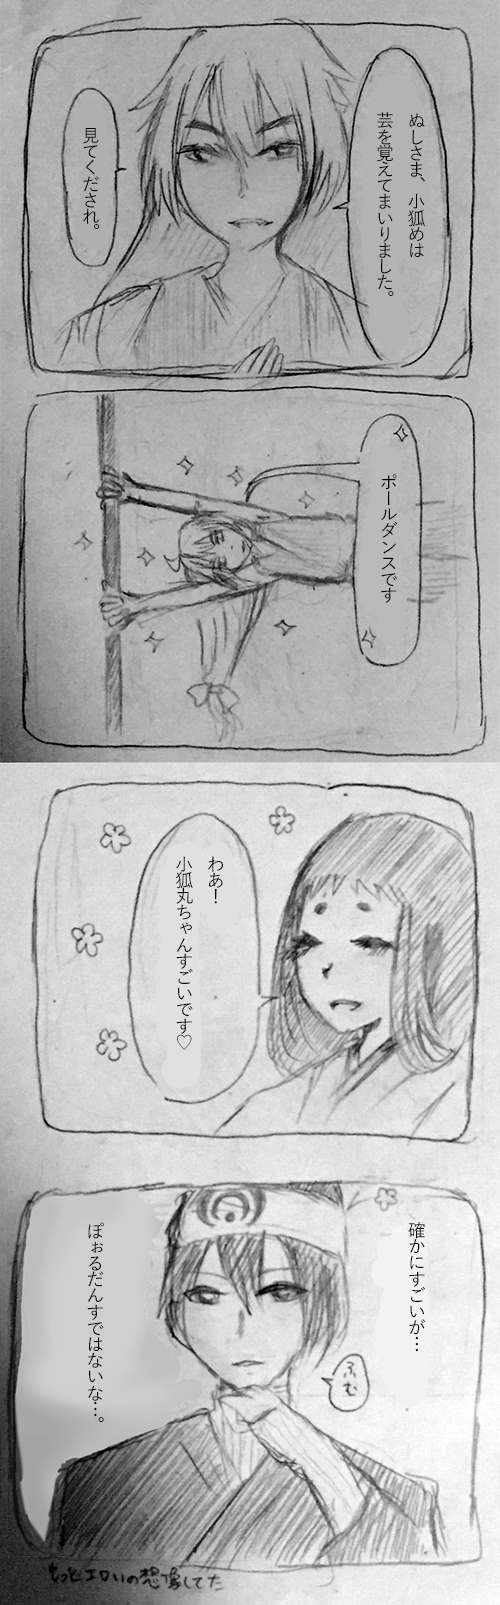 ぬしさま、小狐めは
芸を覚えてまいりました。
見てくだされ。
ポールダンスです
わあ！
小狐丸ちゃんすごいです♡
確かにすごいが…
ふむ
ぽぉるだんすではないな…。
もっとエロいの想像してた